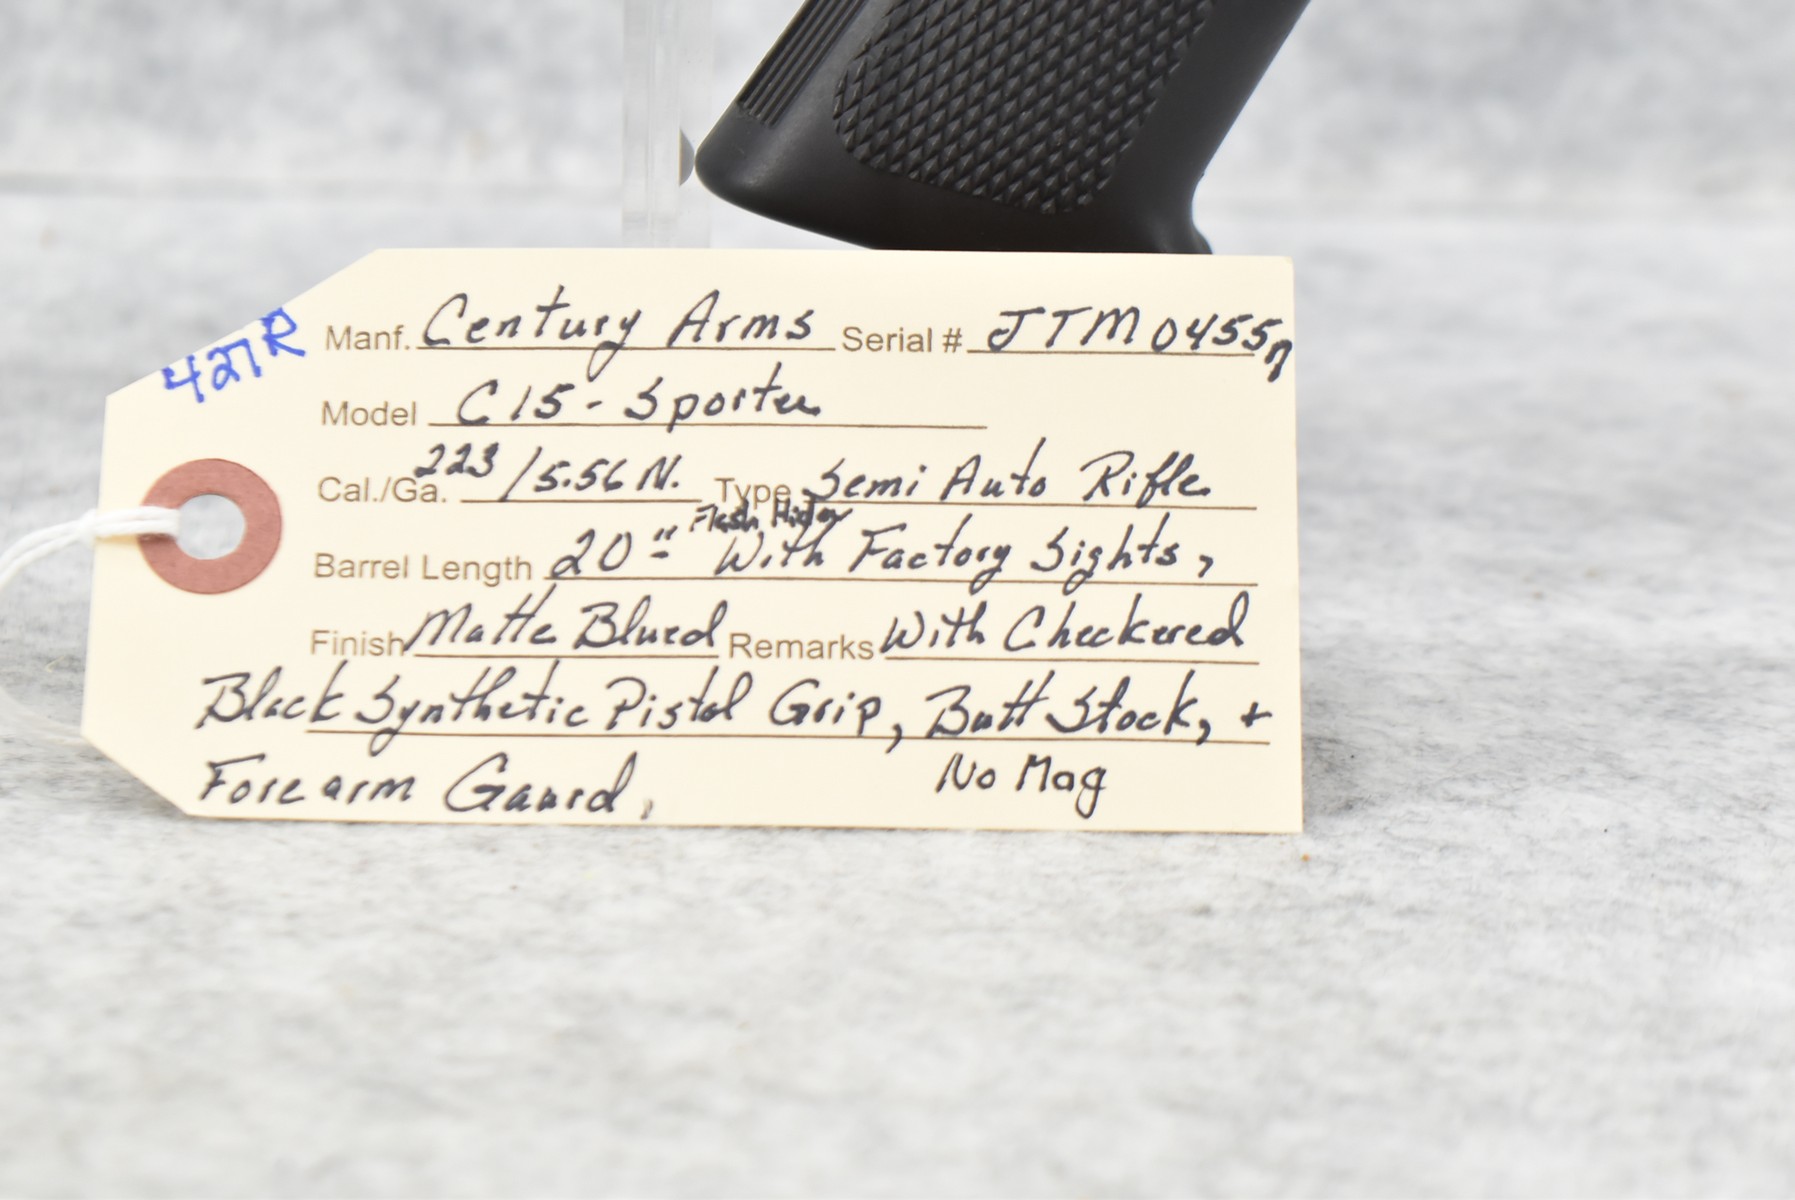 427R
Manf. Century Arms Serial # JTM04557
Model C15 - Sporter
Cal./Ga. 223/5.56 N. Type Semi Auto Rifle
Flash Hider
Barrel Length 20" With Factory Sights,
Finish Matte Blued Remarks With Checkered
Black Synthetic Pistol Grip, Butt Stock, +
Forearm Gaurd,
No Mag